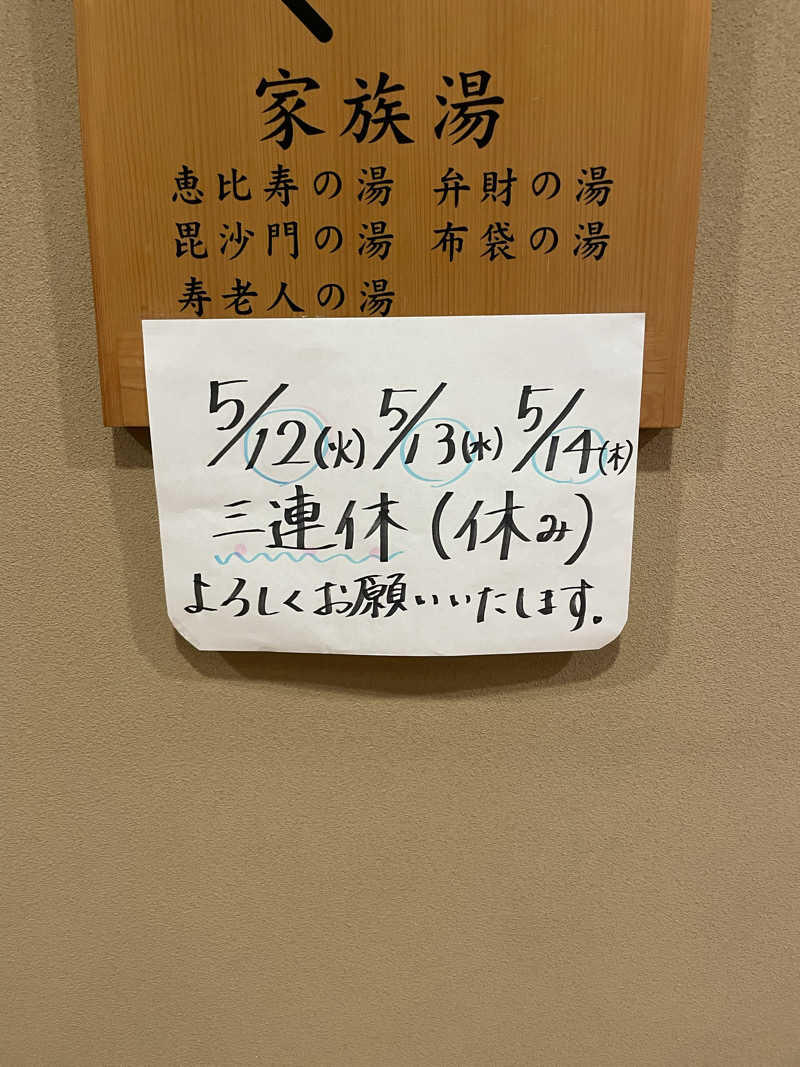 家族湯
恵比寿の湯 弁財の湯
毘沙門の湯 布袋の湯
寿老人の湯
5/12(火) 5/13(水) 5/14(木)
三連休(休み)
よろしくお願いいたします。